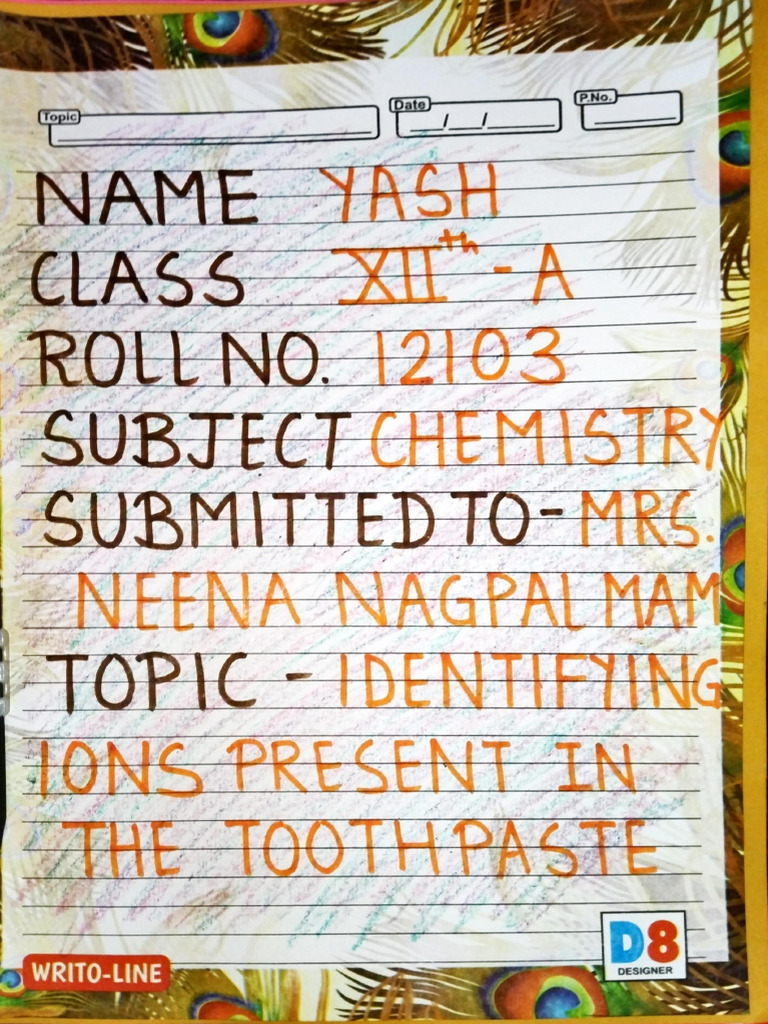 Topic Date / / P.No.
NAME YASH
CLASS XIIth - A
ROLL NO. 12103
SUBJECT CHEMISTRY
SUBMITTED TO - MRS.
NEENA NAGPAL MAM
TOPIC - IDENTIFYING
IONS PRESENT IN
THE TOOTHPASTE
WRITO-LINE
D8
DESIGNER